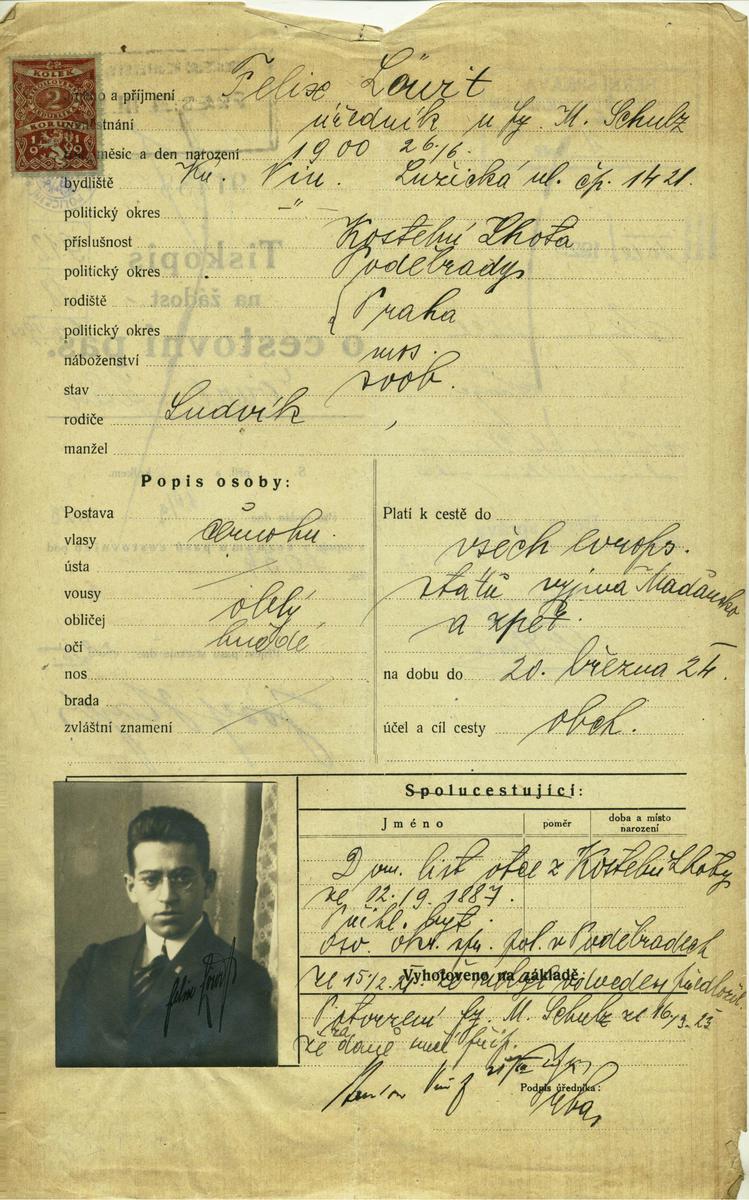 KOLEK
2
KORUNY
1919
jméno a příjmení Felix Löwit
zaměstnání úředník u fy. M. Schulz
rok, měsíc a den narození 1900 26/6.
bydliště Kr. Vin. Lužická ul. čp. 1421.
politický okres -"-
příslušnost Kostelní Lhota
politický okres Poděbrady
rodiště Praha
politický okres
náboženství mos.
stav svob.
rodiče Ludvík ,
manžel
Popis osoby:
Postava
vlasy černohn.
ústa
vousy
obličej oblý
oči hnědé
nos
brada
zvláštní znamení
Platí k cestě do
všech evrops.
států vyjma Maďarsko
a zpět.
na dobu do 20. března 24.
účel a cíl cesty obch.
Felix Löwit
Spolucestující:
Jméno poměr doba a místo narození
Dom. list otce z Kostelní Lhoty
ze 12.19.1887.
Přihl. byt.
osv. okr. spr. pol. v Poděbradech
ze 15/2.
Vyhotoveno na základě:
Potvrzení fy. M. Schulz ze 16/3.23
že za daně
Podpis úředníka: